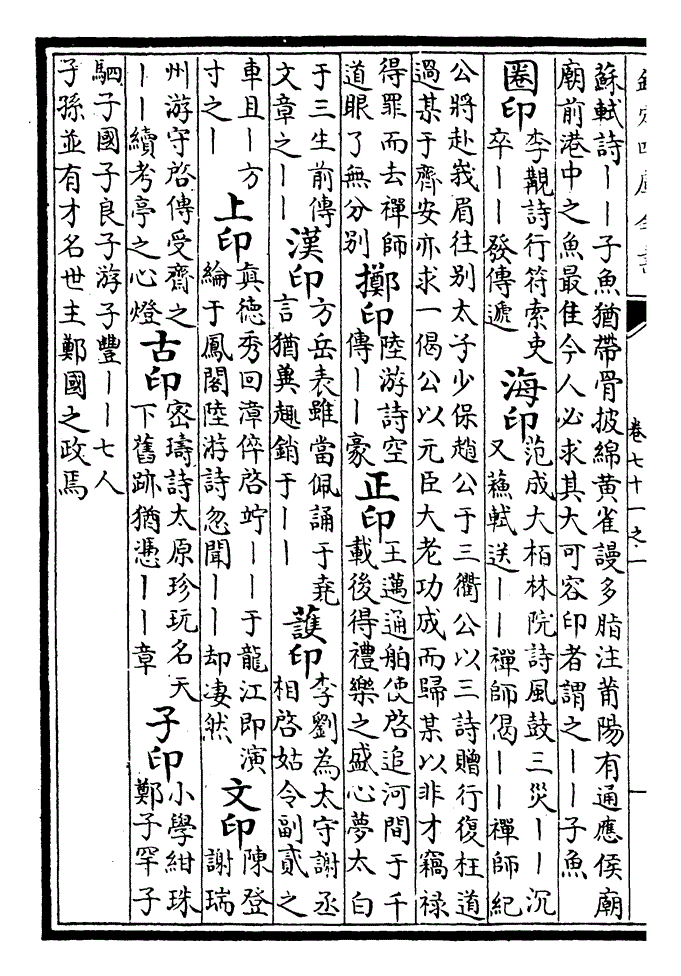 欽定四庫全書
卷七十一之一
蘇軾詩——子魚猶帶骨披綿黃雀謾多脂注莆陽有通應侯廟
廟前港中之魚最隹今人必求其大可容印者謂之——子魚
圏印 李觀詩行符索吏
卒——發傳遞
海印 范成大栢林院詩風鼓三災——沉
又蘇軾送——禪師偈——禪師紀
公將赴峩眉往别太子少保趙公于三衢公以三詩贈行復枉道
過某于齊安亦求一偈公以元臣大老功成而歸某以非才竊禄
得罪而去禪師
道眼了無分别
擲印 陸游詩空
傳——豪
正印 王邁通舶使啓追河間于千
載後得禮樂之盛心夢太白
于三生前傳
文章之——
漢印 方岳表雖當佩誦于堯
言猶冀趣銷于——
護印 李劉為太守謝丞
相啓姑令副貳之
車且—方
寸之—
上印 真德秀回漳倅啓竚——于龍江即演
綸于鳳閣陸游詩忽聞——却凄然
文印 陳登
謝瑞
州游守啓傳受齊之
——續考亭之心燈
古印 宻璹詩太原珍玩名天
下舊跡猶憑——章
子印 小學紺珠
鄭子罕子
駟子國子良子游子豐——七人
子孫並有才名世主鄭國之政焉